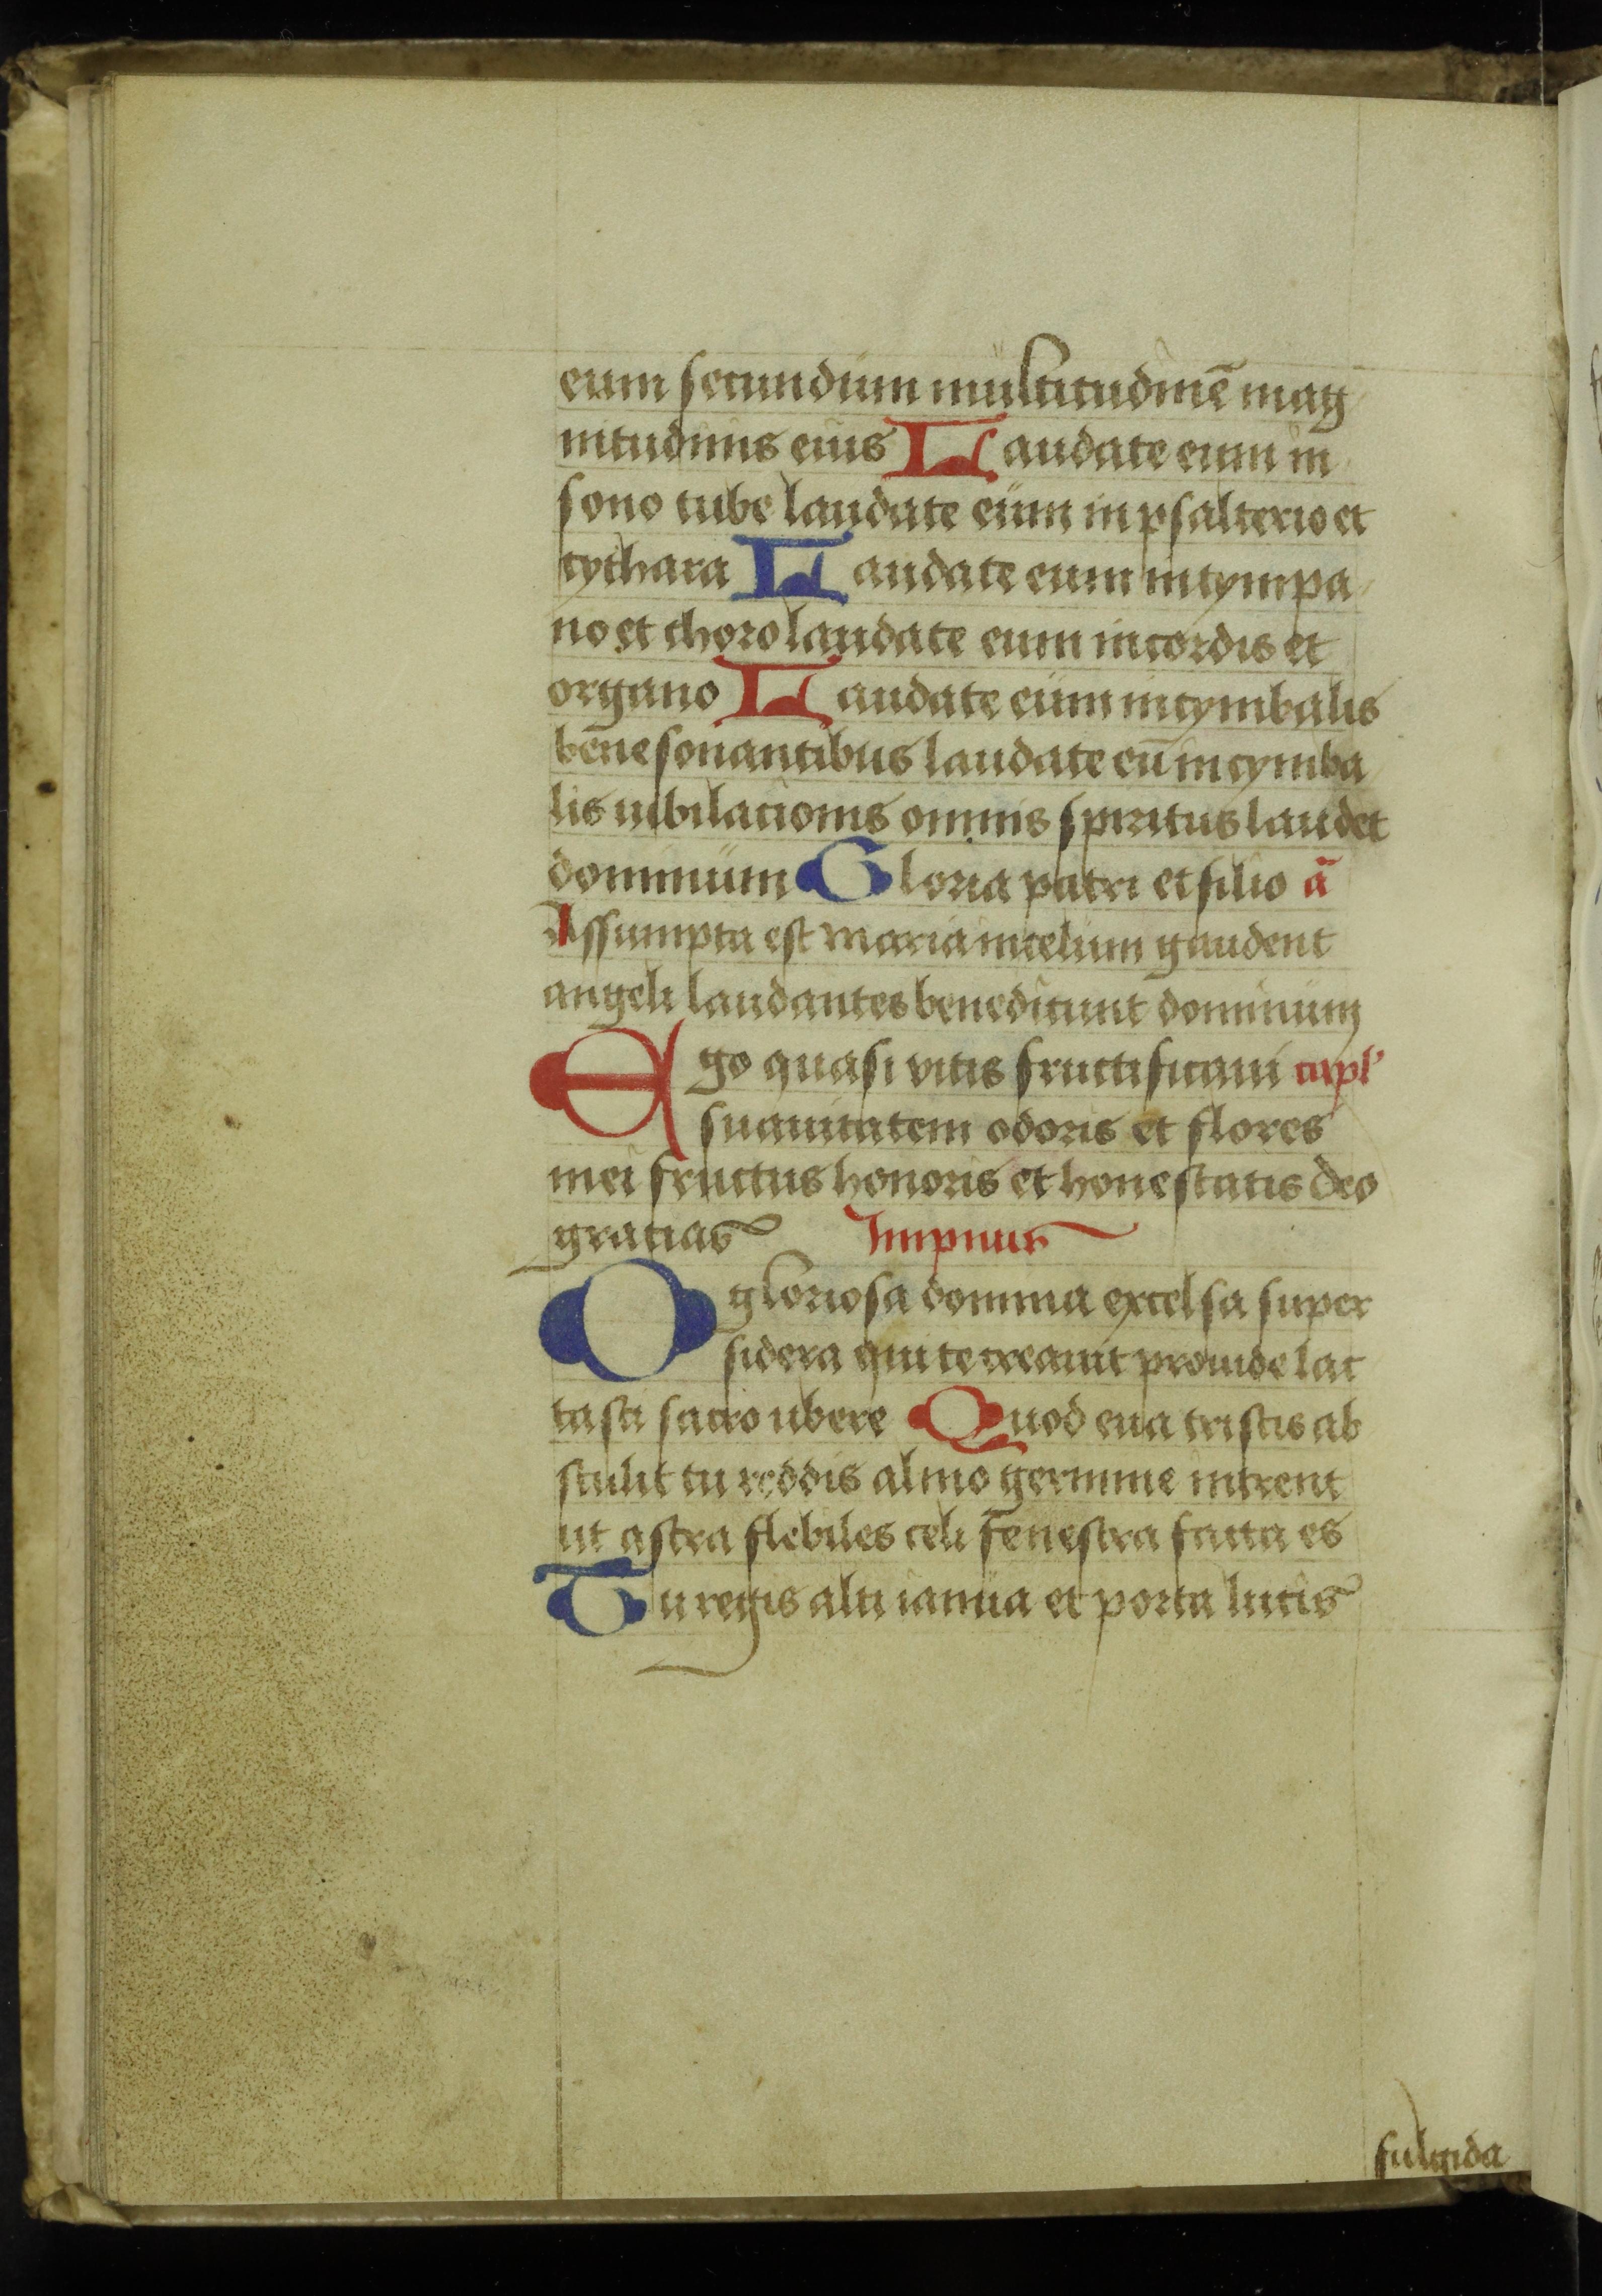 eum secundum multitudinē mag
nitudinis eius Laudate eum in
sono tube laudate eum in psalterio et
cythara Laudate eum in tympa
no et choro laudate eum in cordis et
organo Laudate eum in cymbalis
bene sonantibus laudate eū in cymba
lis iubilacionis omnis spiritus laudet
dominum Gloria patri et filio ā
Assumpta est maria in celum gaudent
angeli laudantes benedicunt dominum
Ego quasi vitis fructificaui capl'
suauitatem odoris et flores
mei fructus honoris et honestatis deo
gracias Impnus
O gloriosa domina excelsa super
sidera qui te creauit prouide lac
tasti sacro ubere Quod eua tristis ab
stulit tu reddis almo germine intrent
ut astra flebiles celi fenestra facta es
Tu regis alti ianua et porta lucis
fulgida